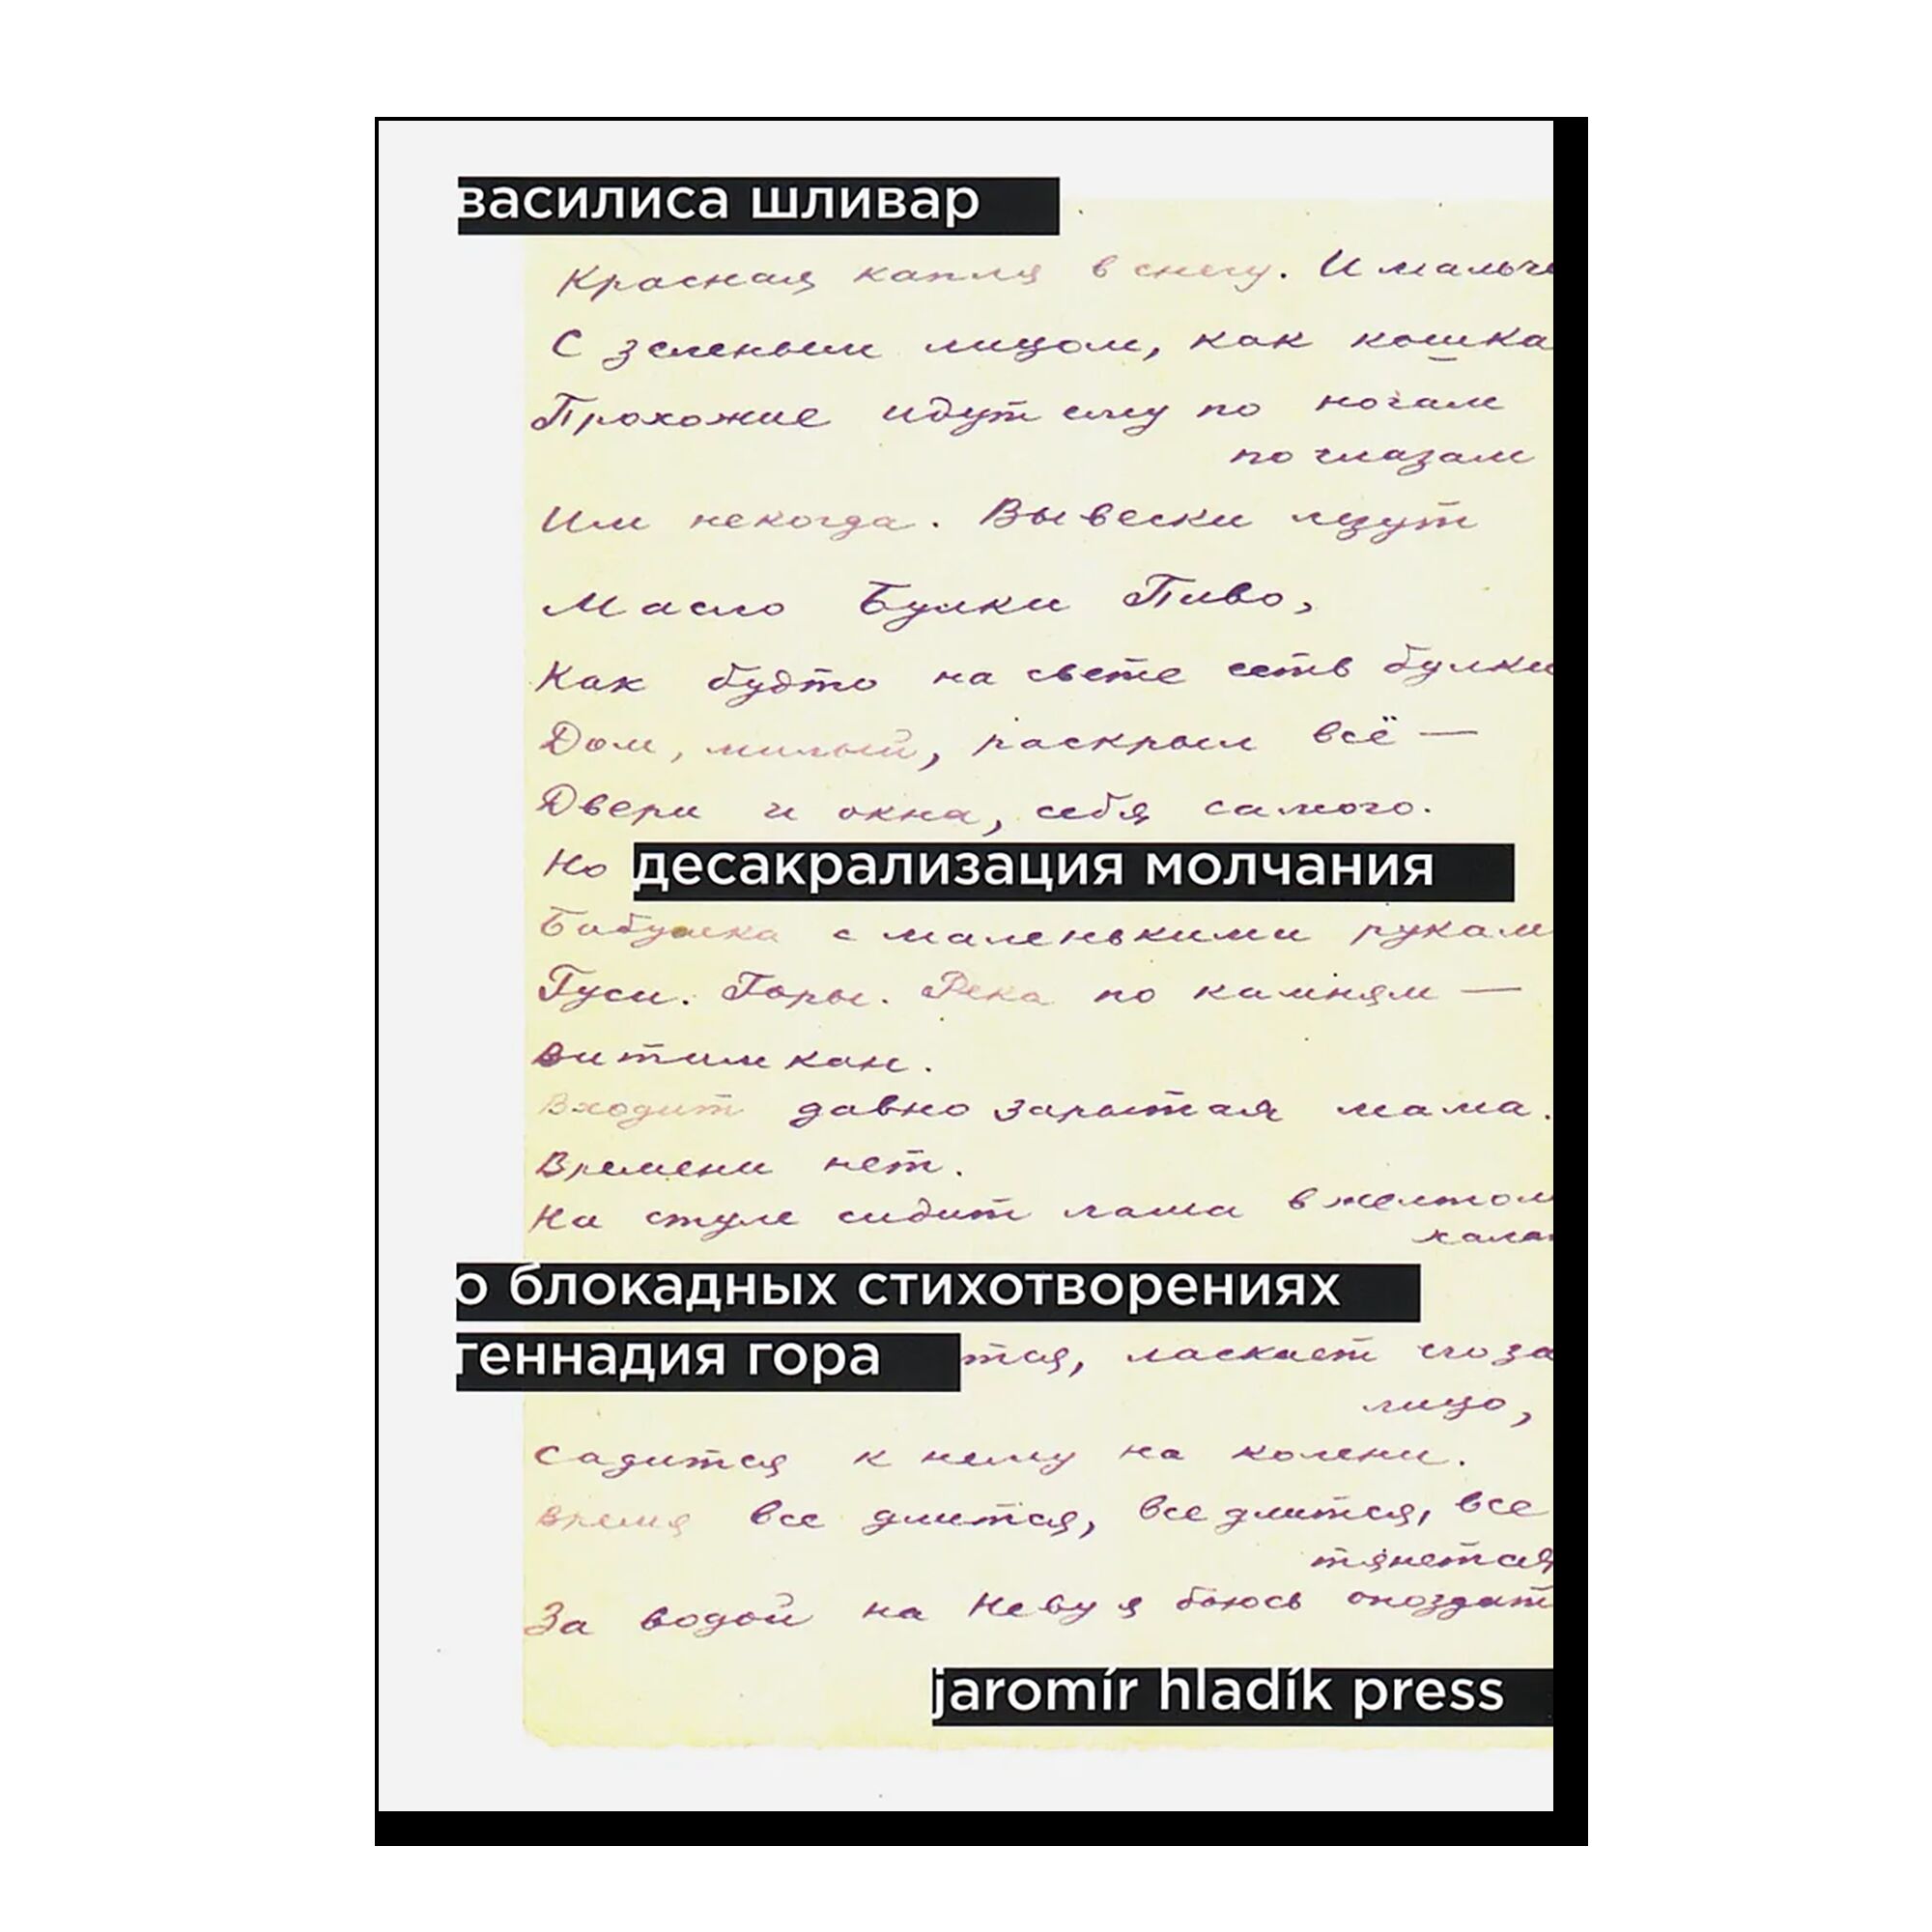 василиса шливар
Красная капля в снегу. И мальчи
С зеленым лицом, как кошка
Прохожие идут ему по ногам
по глазам
Им некогда. Вывески лезут
Масло Булки Пиво,
Как будто на свете есть булки
Дом, милый, раскрыл всё —
Двери и окна, себя самого.
Но десакрализация молчания
Бабушка с маленькими рукам
Гуси. Горы. Река по камням —
Витимкан.
Входит давно зарытая мама.
Времени нет.
На стуле сидит лама в желтом
хала
о блокадных стихотворениях
геннадия гора тся, ласкает его за
лицо,
Садится к нему на колени.
Время все длится, все длится, все
тянется
За водой на Неву я боюсь опоздат
jaromír hladík press